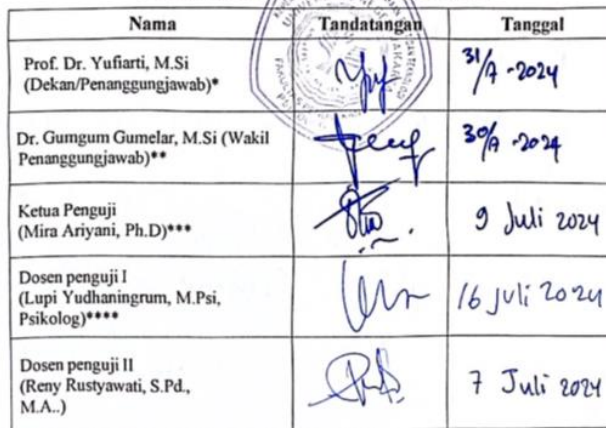 Nama Tandatangan Tanggal
Prof. Dr. Yufiarti, M.Si
(Dekan/Penanggungjawab)* 31/7 -2024
Dr. Gumgum Gumelar, M.Si (Wakil
Penanggungjawab)** 30/7 -2024
Ketua Penguji
(Mira Ariyani, Ph.D)*** 9 Juli 2024
Dosen penguji I
(Lupi Yudhaningrum, M.Psi, 16 Juli 2024
Psikolog)****
Dosen penguji II
(Reny Rustyawati, S.Pd., 7 Juli 2024
M.A..)